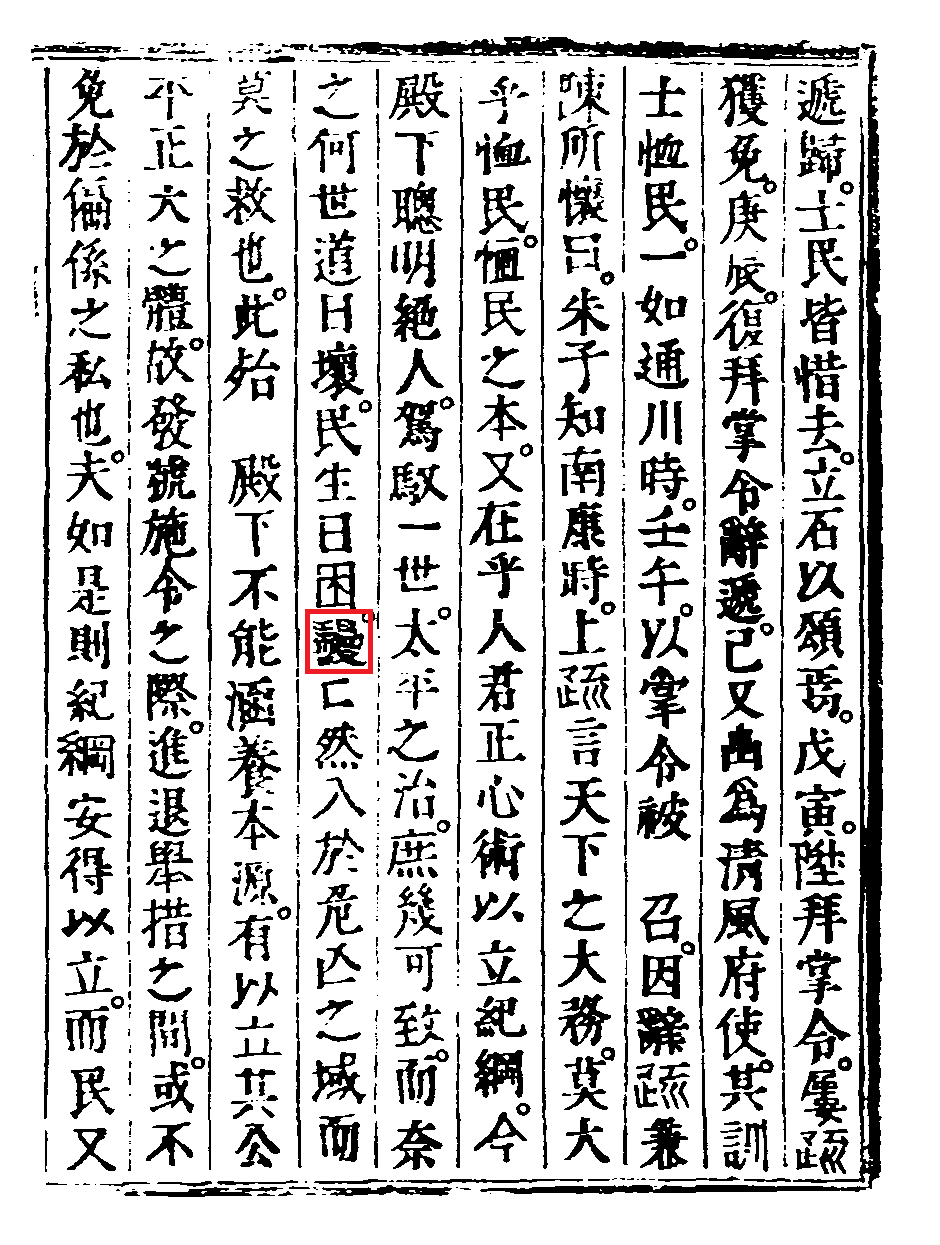 遞歸。士民皆惜去。立石以頌焉。戊寅。陞拜掌令。屢疏
獲免。庚辰。復拜掌令辭遞。已又出爲清風府使。其訓
士恤民。一如通川時。壬午。以掌令被　召。因辭疏兼
陳所懷曰。朱子知南康時。上疏言天下之大務。莫大
乎恤民。恤民之本。又在乎人君正心術以立紀綱。今
殿下聰明絶人。駕馭一世。太平之治。庶幾可致。而奈
之何世道日壞。民生日困。匕然入於危亡之域而
莫之救也。此殆　殿下不能涵養本源。有以立其公
平正大之體。故發號施令之際。進退舉措之間。或不
免於偏係之私也。夫如是則紀綱安得以立。而民又